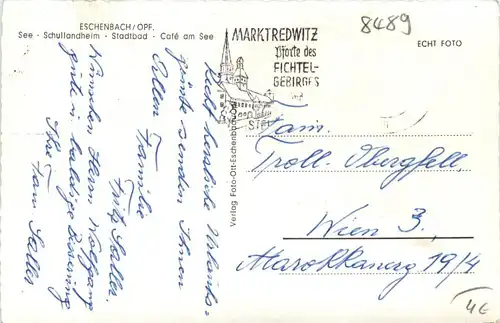 ESCHENBACH/OPF.
See - Schullandheim - Stadtbad - Café am See
Recht herzliche Urlaubs-
grüße senden Ihnen
Allen
Familie
Fritz Saller.
Wünschen Herrn Wolfgang
gute u. baldige Besserung
Ihre Fam. Saller
Verlag Foto-Ott-Eschenbach
MARKTREDWITZ
Pforte des
FICHTEL-
GEBIRGES
8489
ECHT FOTO
Fam.
Troll-Obergfell,
Wien 3,
Marokkanerg 19/4
4€